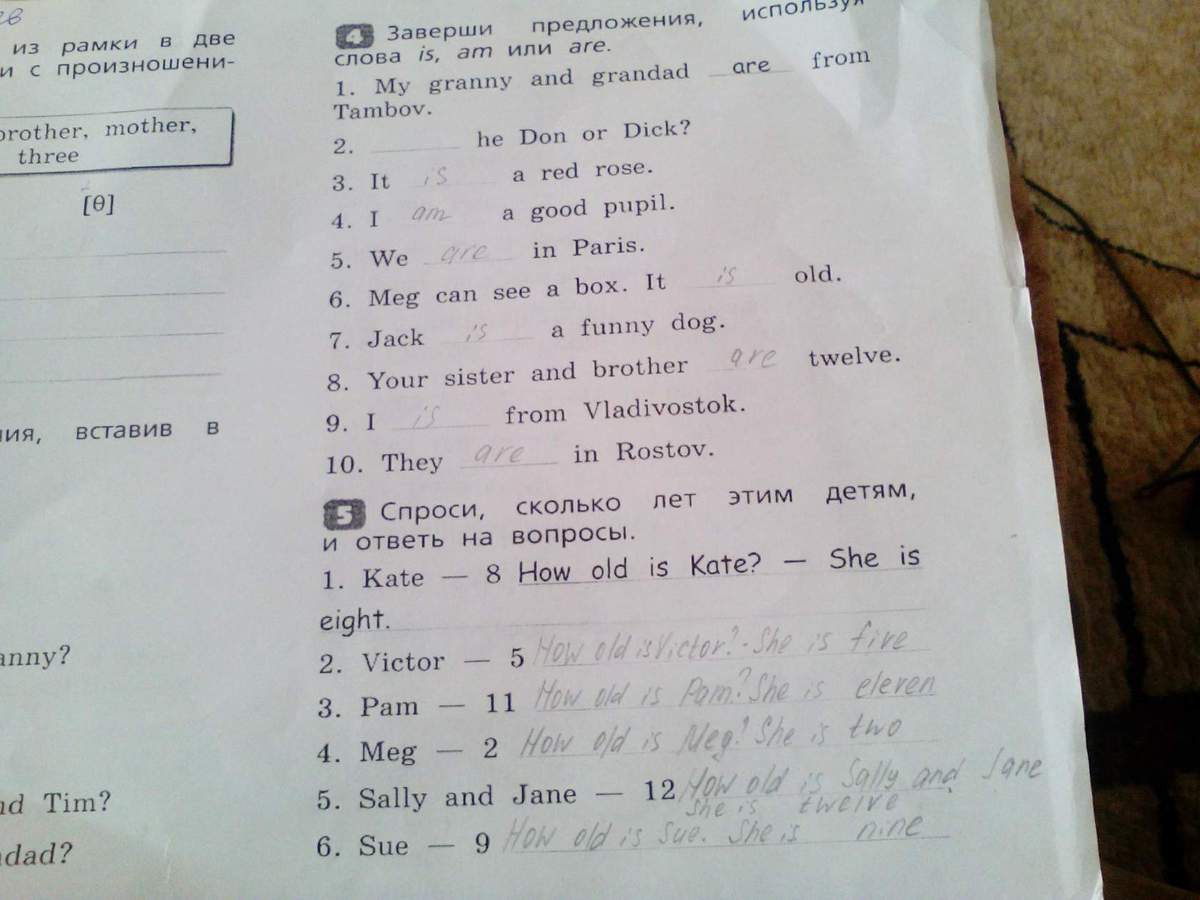 из рамки в две
и с произношени-
brother, mother,
three
[θ]
ния, вставив в
anny?
nd Tim?
ndad?
4 Заверши предложения, используя
слова is, am или are.
1. My granny and grandad are from
Tambov.
2. ______ he Don or Dick?
3. It is a red rose.
4. I am a good pupil.
5. We are in Paris.
6. Meg can see a box. It is old.
7. Jack is a funny dog.
8. Your sister and brother are twelve.
9. I is from Vladivostok.
10. They are in Rostov.
5 Спроси, сколько лет этим детям,
и ответь на вопросы.
1. Kate — 8 How old is Kate? — She is
eight.
2. Victor — 5 How old is Victor? - She is five
3. Pam — 11 How old is Pam? She is eleven
4. Meg — 2 How old is Meg? She is two
5. Sally and Jane — 12 How old is Sally and Jane
She is twelve
6. Sue — 9 How old is Sue. She is nine